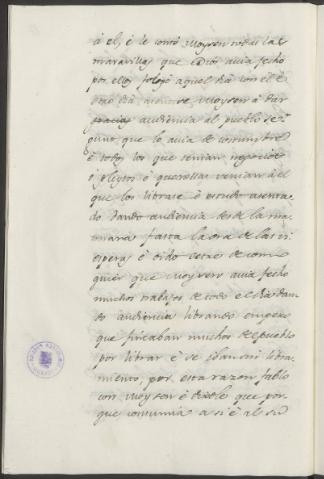 á el, é le contó Moysen todas las
maravillas que Dios avia fecho
por ellos folgó aquel dia con él é
otro dia Moysen á dar
gracias audiencia al pueblo se-
gunt que lo avia de costumbre
é todos los que tenian negocios
ó pleytos ó querellas venian á él
que los librase é estudo asenta-
do dando audiencia desde la ma-
ñana fasta la ora de las vi-
esperas é
quier que Moysen avia fecho
muchos trabajos de todo el dia dan-
do audiencia librando empero
que fincaban muchos del pueblo
por librar é se iban sin libra-
miento, por esta razon fabló
con Moysen é dixole que por-
que consumia a si é al su